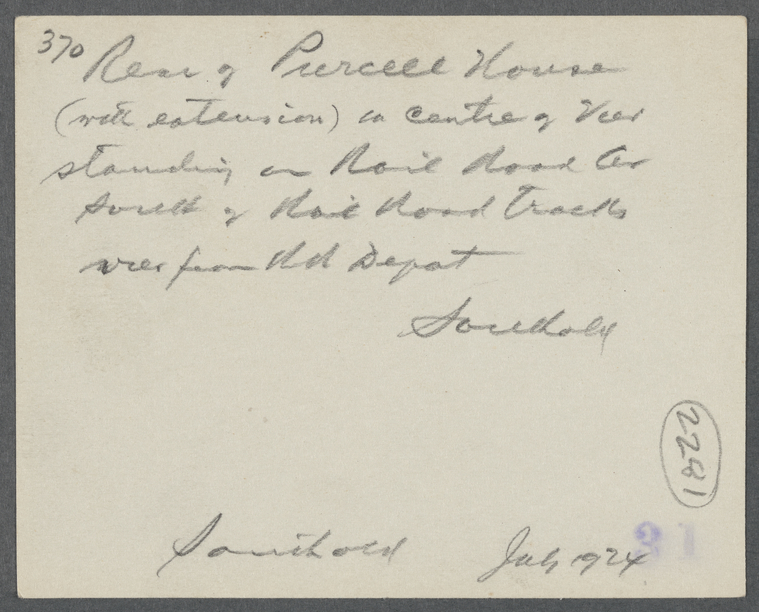 370 Rear of Purcell House
(with extension) in centre of View
standing on Rail Road Av
South of Rail Road Tracks
view from RR Depot
Southold
2281
21
Southold July 1924